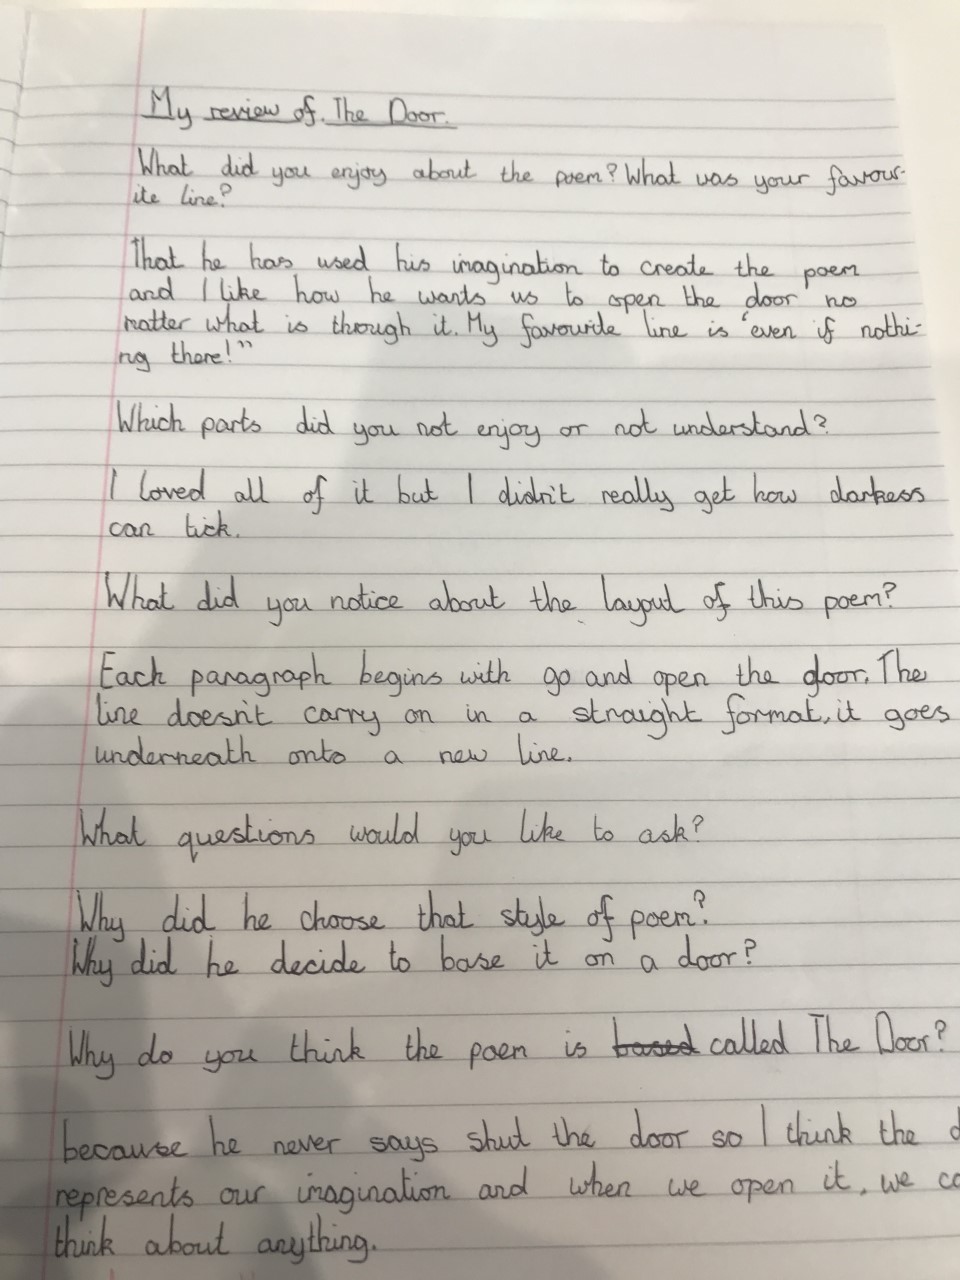 My review of. The Door.
What did you enjoy about the poem? What was your favour-
ite line?
That he has used his imagination to create the poem
and I like how he wants us to open the door no
matter what is through it. My favourite line is 'even if nothi-
ng there!"
Which parts did you not enjoy or not understand?
I loved all of it but I didn't really get how darkess
can tick.
What did you notice about the layout of this poem?
Each paragraph begins with go and open the door. The
line doesn't carry on in a straight format, it goes
underneath onto a new line.
What questions would you like to ask?
Why did he choose that style of poem?
Why did he decide to base it on a door?
Why do you think the poem is based called The Door?
because he never says shut the door so I think the d
represents our imagination and when we open it, we co
think about anything.